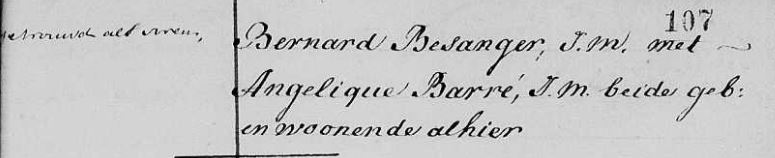 107
getrouwd alhier
Bernard Besanger, J. M. met ~
Angelique Barré, J. M. beide geb:
en woonende alhier